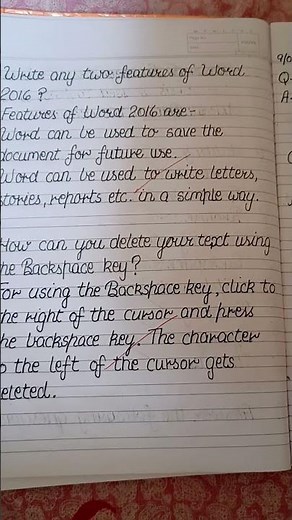 Write any two features of Word
2016 ?
Features of Word 2016 are:-
Word can be used to save the
document for future use.
Word can be used to write letters,
stories, reports etc. in a simple way.
How can you delete your text using
the Backspace key?
For using the Backspace key, click to
the right of the cursor and press
the backspace key. The character
to the left of the cursor gets
deleted.
9/0
Q-
A-